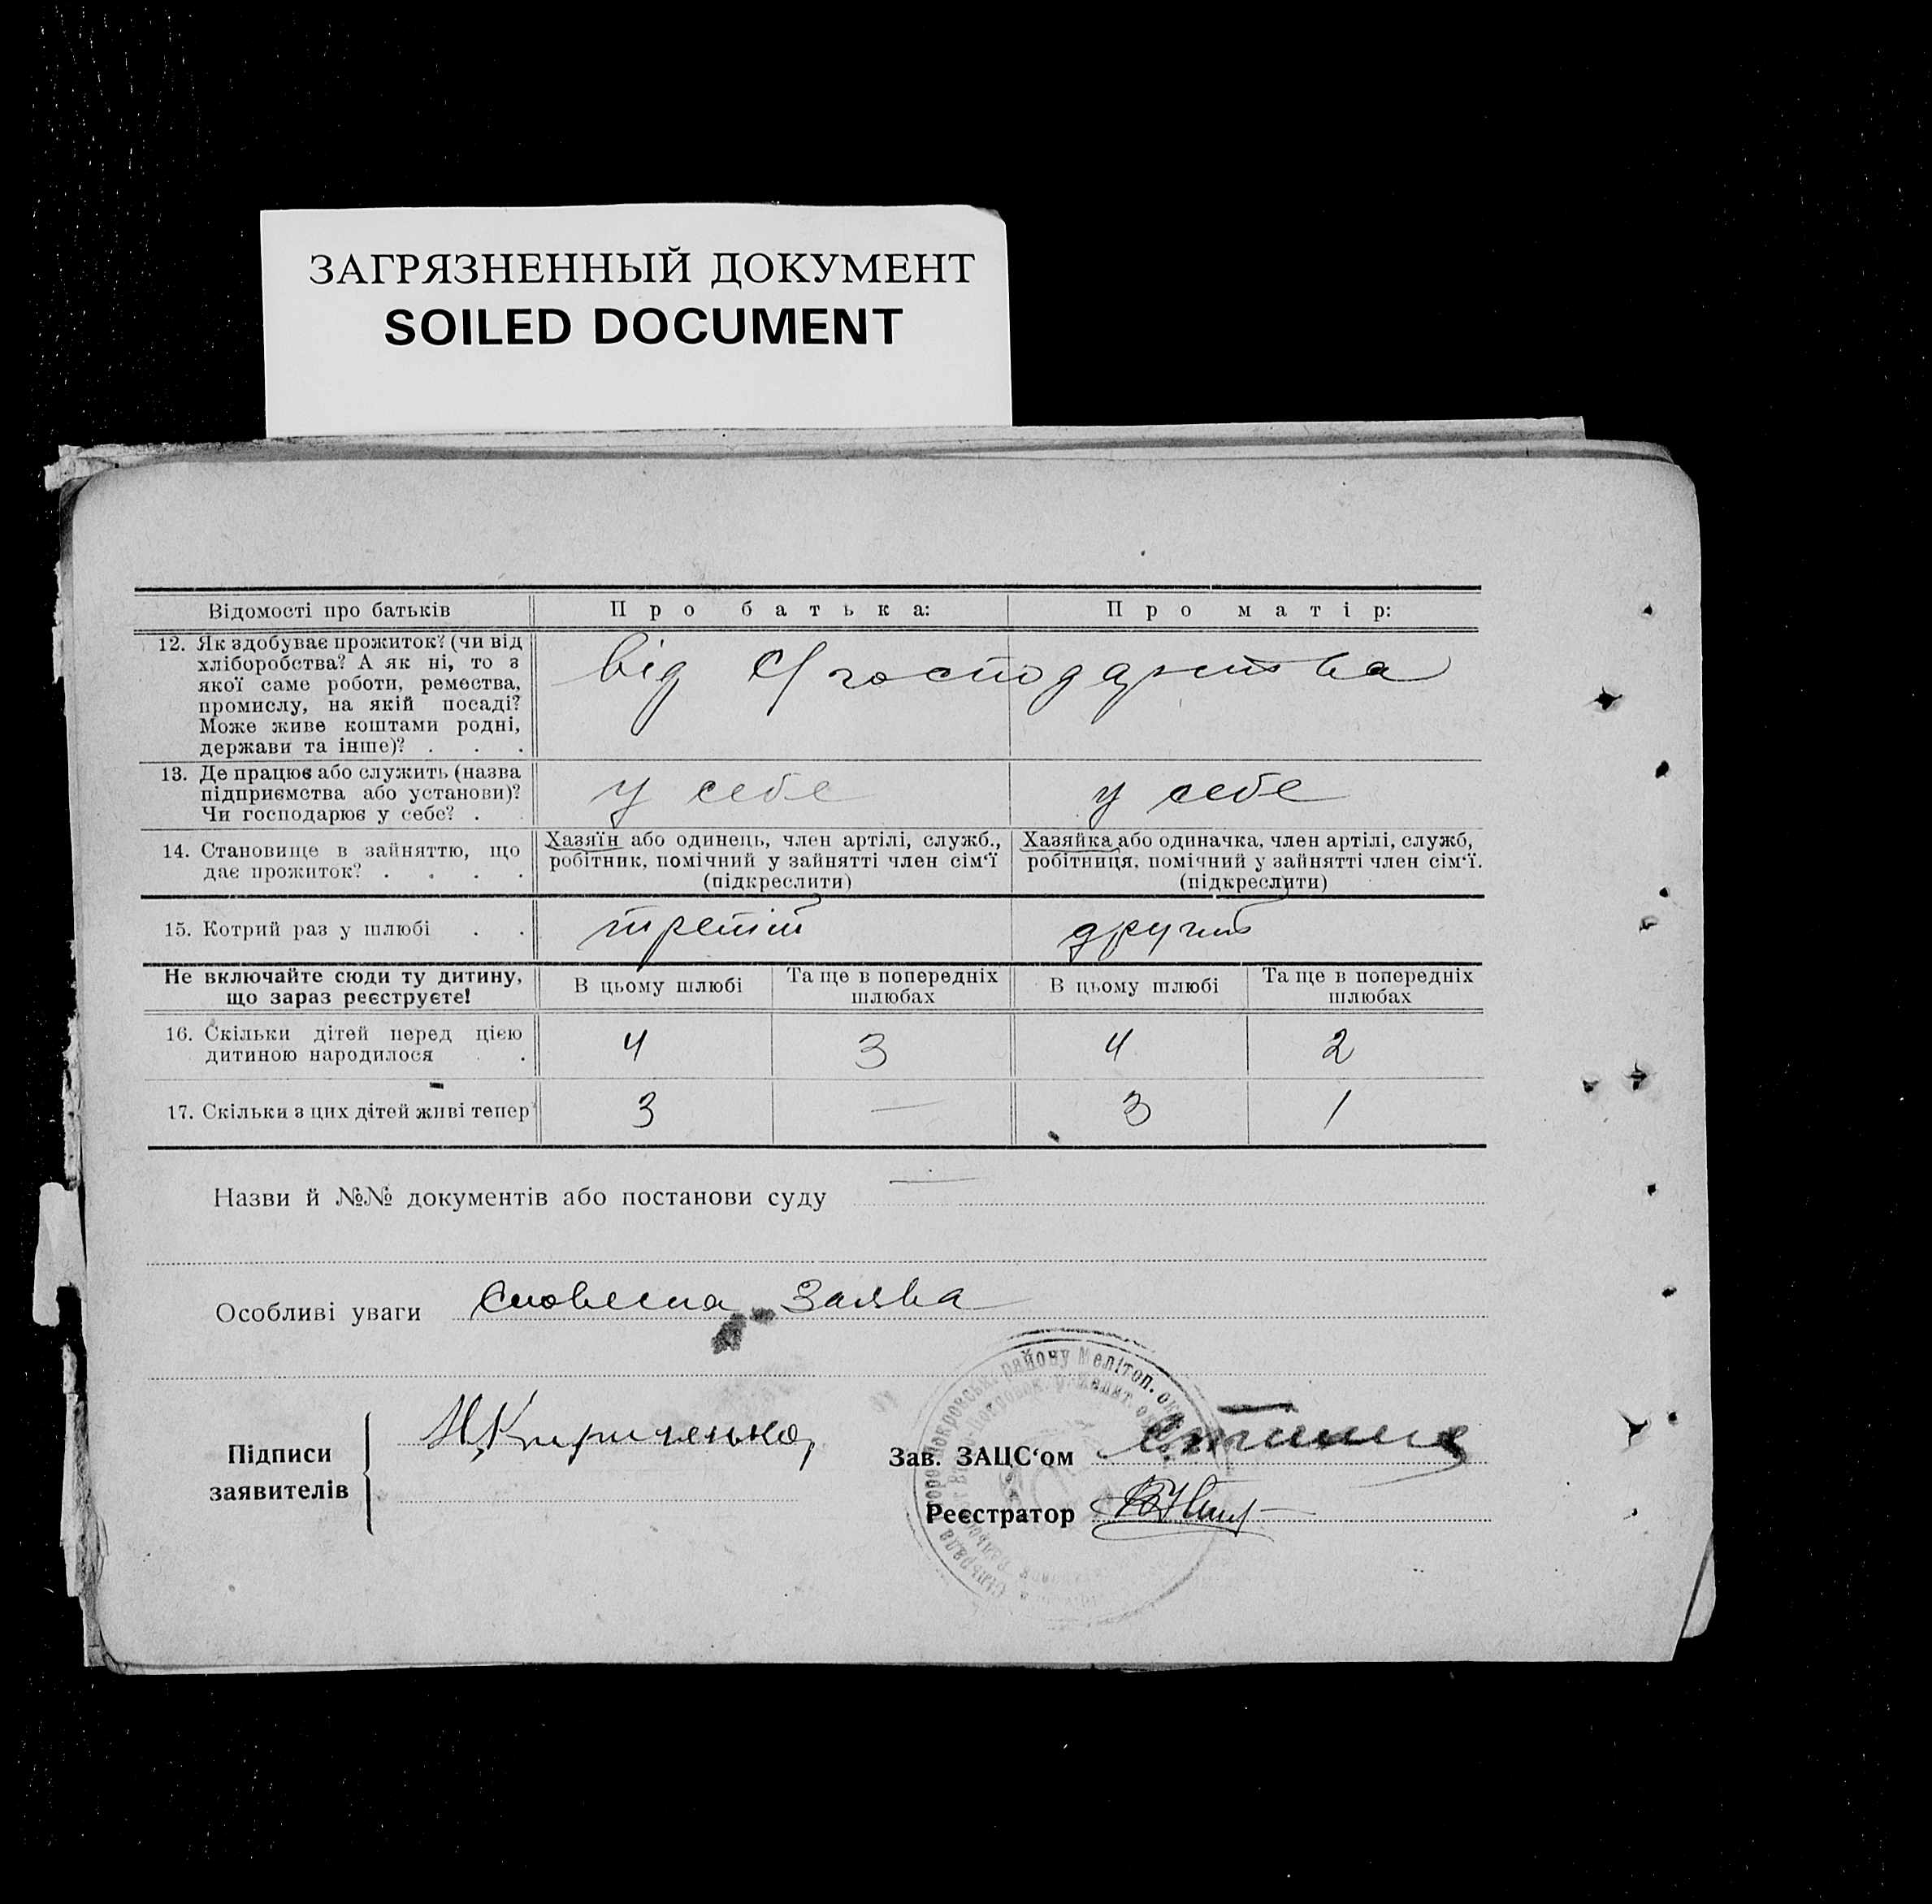 ЗАГРЯЗНЕННЫЙ ДОКУМЕНТ
SOILED DOCUMENT
Відомості про батьків
Про батька:
Про матір:
12. Як здобуває прожиток? (чи від
хліборобства? А як ні, то з
якої саме роботи, ремества,
промислу, на якій посаді?
Може живе коштами родні,
держави та інше)? . . .
від С/господарства
13. Де працює або служить (назва
підприємства або установи)?
Чи господарює у себе? .
у себе
у себе
14. Становище в зайняттю, що
дає прожиток? . . . .
Хазяїн або одинець, член артілі, служб.,
робітник, помічний у зайнятті член сім'ї
(підкреслити)
Хазяйка або одиначка, член артілі, служб,
робітниця, помічний у зайнятті член сім'ї.
(підкреслити)
15. Котрий раз у шлюбі . .
третій
другий
Не включайте сюди ту дитину,
що зараз реєструєте!
В цьому шлюбі
Та ще в попередніх
шлюбах
В цьому шлюбі
Та ще в попередніх
шлюбах
16. Скільки дітей перед цією
дитиною народилося .
4 3 4 2
17. Скільки з цих дітей живі тепер
3 — 3 1
Назви й №№ документів або постанови суду —
Особливі уваги Словесна Заява
Підписи
заявителів
Кириченко
Зав. ЗАЦС'ом
Реєстратор
покровськ. району Мелітоп. ок
Сільрада